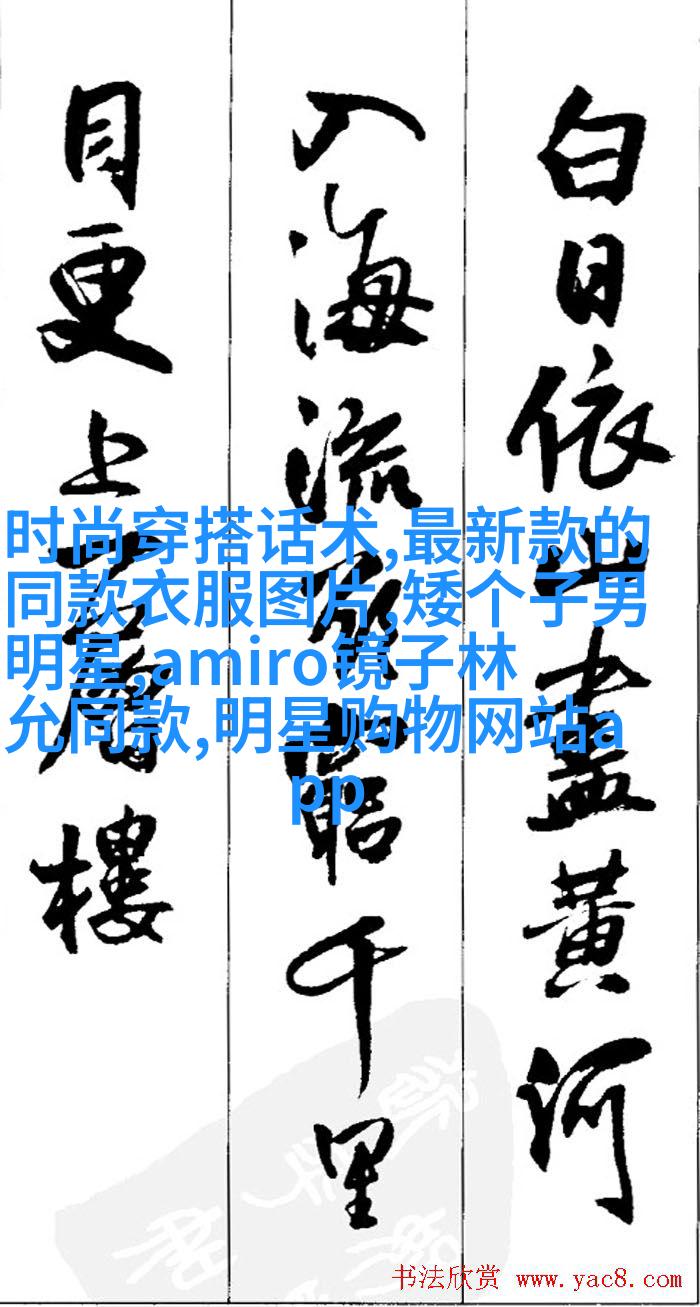 白日依山盡黃河
入海流欲窮千里
目更上一層樓
时尚穿搭话术,最新款的
同款衣服图片,矮个子男
明星,amiro镜子林
允同款,明星购物网站a
pp
书法欣赏 www.yac8.com